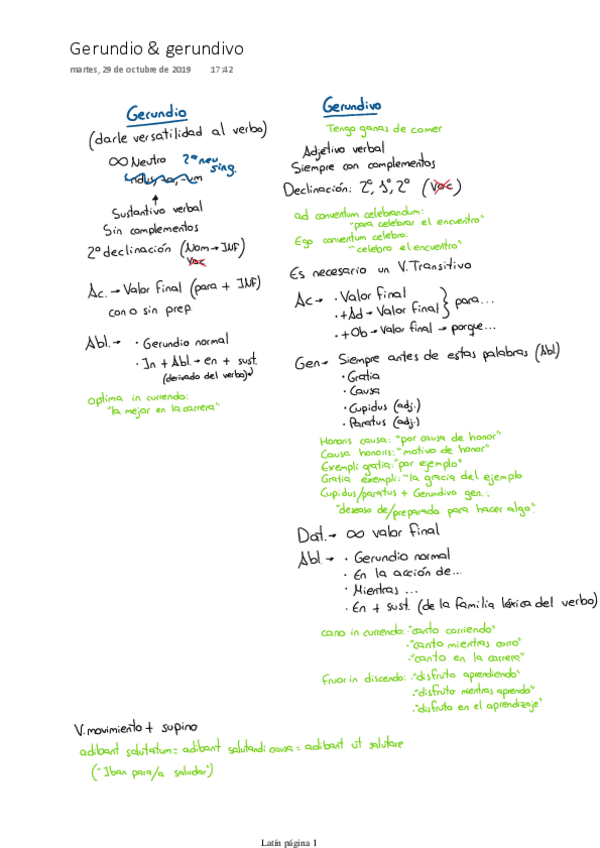 Gerundio & gerundivo
martes, 29 de octubre de 2019 17:42
Gerundio
(darle versatilidad al verbo)
∞ Neutro 2ª neu sing.
↑
Sustantivo verbal
Sin complementos
2º declinación (Nom→INF)
Voc
Ac.→Valor Final (para + INF)
con o sin prep.
Abl.→ · Gerundio normal
· In + Abl.→ en + sust.
(derivado del verbo)
optima in currendo:
"la mejor en la carrera"
Gerundivo
Tengo ganas de comer
Adjetivo verbal
Siempre con complementos
Declinación: 2º, 1º, 2º (Voc)
ad conventum celebrandum:
"para celebrar el encuentro"
Ego conventum celebro:
"celebro el encuentro"
Es necesario un V. Transitivo
Ac→ · Valor final
· +Ad→ Valor final } para...
· +Ob→Valor final → porque...
Gen→ Siempre antes de estas palabras (Abl)
· Gratia
· Causa
· Cupidus (adj.)
· Paratus (adj.)
Honoris causa: "por causa de honor"
Causa honoris: "motivo de honor"
Exempli gratia: "por ejemplo"
Gratia exempli: "la gracia del ejemplo
Cupidus/paratus + Gerundivo gen.:
"deseoso de/preparado para hacer algo"
Dat.→ ∞ valor final
Abl→ · Gerundio normal
· En la acción de...
· Mientras ...
· En + sust. (de la familia léxica del verbo)
cano in currendo: ·"canto corriendo"
·"canto mientras corro"
·"canto en la carrera"
Fruor in discendo: ·"disfruto aprendiendo"
·"disfruto mentras aprendo"
·"disfruto en el aprendizaje"
V. movimiento + supino
adibant salutatum = adibant salutandi causa = adibant ut salutare
("Iban para/a saludar")
Latín página 1